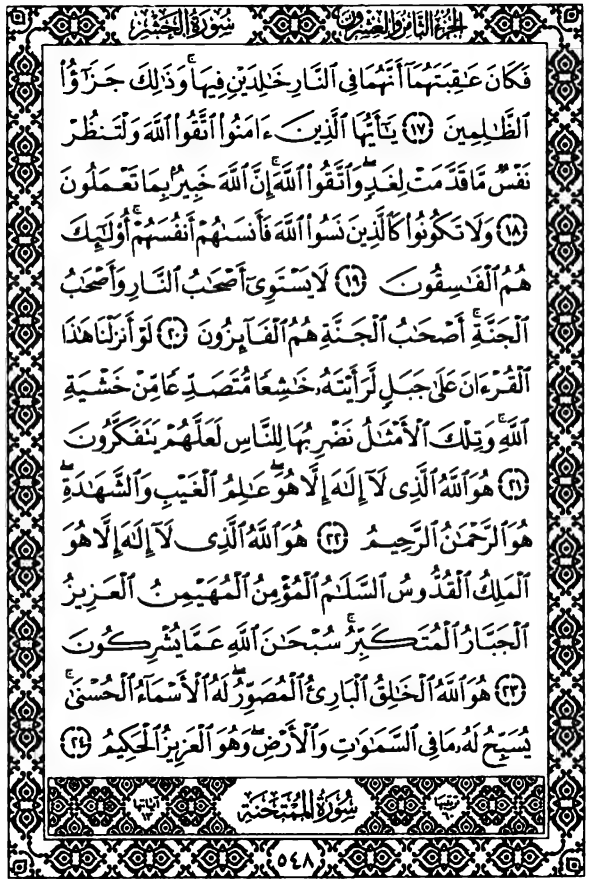 سُورَةُ الحَشْرِ الجزء الثامن والعشرون
فَكَانَ عَٰقِبَتَهُمَآ أَنَّهُمَا فِى ٱلنَّارِ خَٰلِدَيْنِ فِيهَاۚ وَذَٰلِكَ جَزَٰٓؤُاْ
ٱلظَّٰلِمِينَ ١٧ يَٰٓأَيُّهَا ٱلَّذِينَ ءَامَنُواْ ٱتَّقُواْ ٱللَّهَ وَلْتَنظُرْ
نَفْسٌ مَّا قَدَّمَتْ لِغَدٍۖ وَٱتَّقُواْ ٱللَّهَۚ إِنَّ ٱللَّهَ خَبِيرٌۢ بِمَا تَعْمَلُونَ
١٨ وَلَا تَكُونُواْ كَٱلَّذِينَ نَسُواْ ٱللَّهَ فَأَنسَىٰهُمْ أَنفُسَهُمْۚ أُوْلَٰٓئِكَ
هُمُ ٱلْفَٰسِقُونَ ١٩ لَا يَسْتَوِىٓ أَصْحَٰبُ ٱلنَّارِ وَأَصْحَٰبُ
ٱلْجَنَّةِۚ أَصْحَٰبُ ٱلْجَنَّةِ هُمُ ٱلْفَآئِزُونَ ٢٠ لَوْ أَنزَلْنَا هَٰذَا
ٱلْقُرْءَانَ عَلَىٰ جَبَلٍ لَّرَأَيْتَهُۥ خَٰشِعًا مُّتَصَدِّعًا مِّنْ خَشْيَةِ
ٱللَّهِۚ وَتِلْكَ ٱلْأَمْثَٰلُ نَضْرِبُهَا لِلنَّاسِ لَعَلَّهُمْ يَتَفَكَّرُونَ
٢١ هُوَ ٱللَّهُ ٱلَّذِى لَآ إِلَٰهَ إِلَّا هُوَۖ عَٰلِمُ ٱلْغَيْبِ وَٱلشَّهَٰدَةِۖ
هُوَ ٱلرَّحْمَٰنُ ٱلرَّحِيمُ ٢٢ هُوَ ٱللَّهُ ٱلَّذِى لَآ إِلَٰهَ إِلَّا هُوَ
ٱلْمَلِكُ ٱلْقُدُّوسُ ٱلسَّلَٰمُ ٱلْمُؤْمِنُ ٱلْمُهَيْمِنُ ٱلْعَزِيزُ
ٱلْجَبَّارُ ٱلْمُتَكَبِّرُۚ سُبْحَٰنَ ٱللَّهِ عَمَّا يُشْرِكُونَ
٢٣ هُوَ ٱللَّهُ ٱلْخَٰلِقُ ٱلْبَارِئُ ٱلْمُصَوِّرُۖ لَهُ ٱلْأَسْمَآءُ ٱلْحُسْنَىٰۚ
يُسَبِّحُ لَهُۥ مَا فِى ٱلسَّمَٰوَٰتِ وَٱلْأَرْضِۖ وَهُوَ ٱلْعَزِيزُ ٱلْحَكِيمُ ٢٤
ترتيبها ٦٠ سُورَةُ المُمْتَحنَةِ آياتها ١٣
٥٤٨